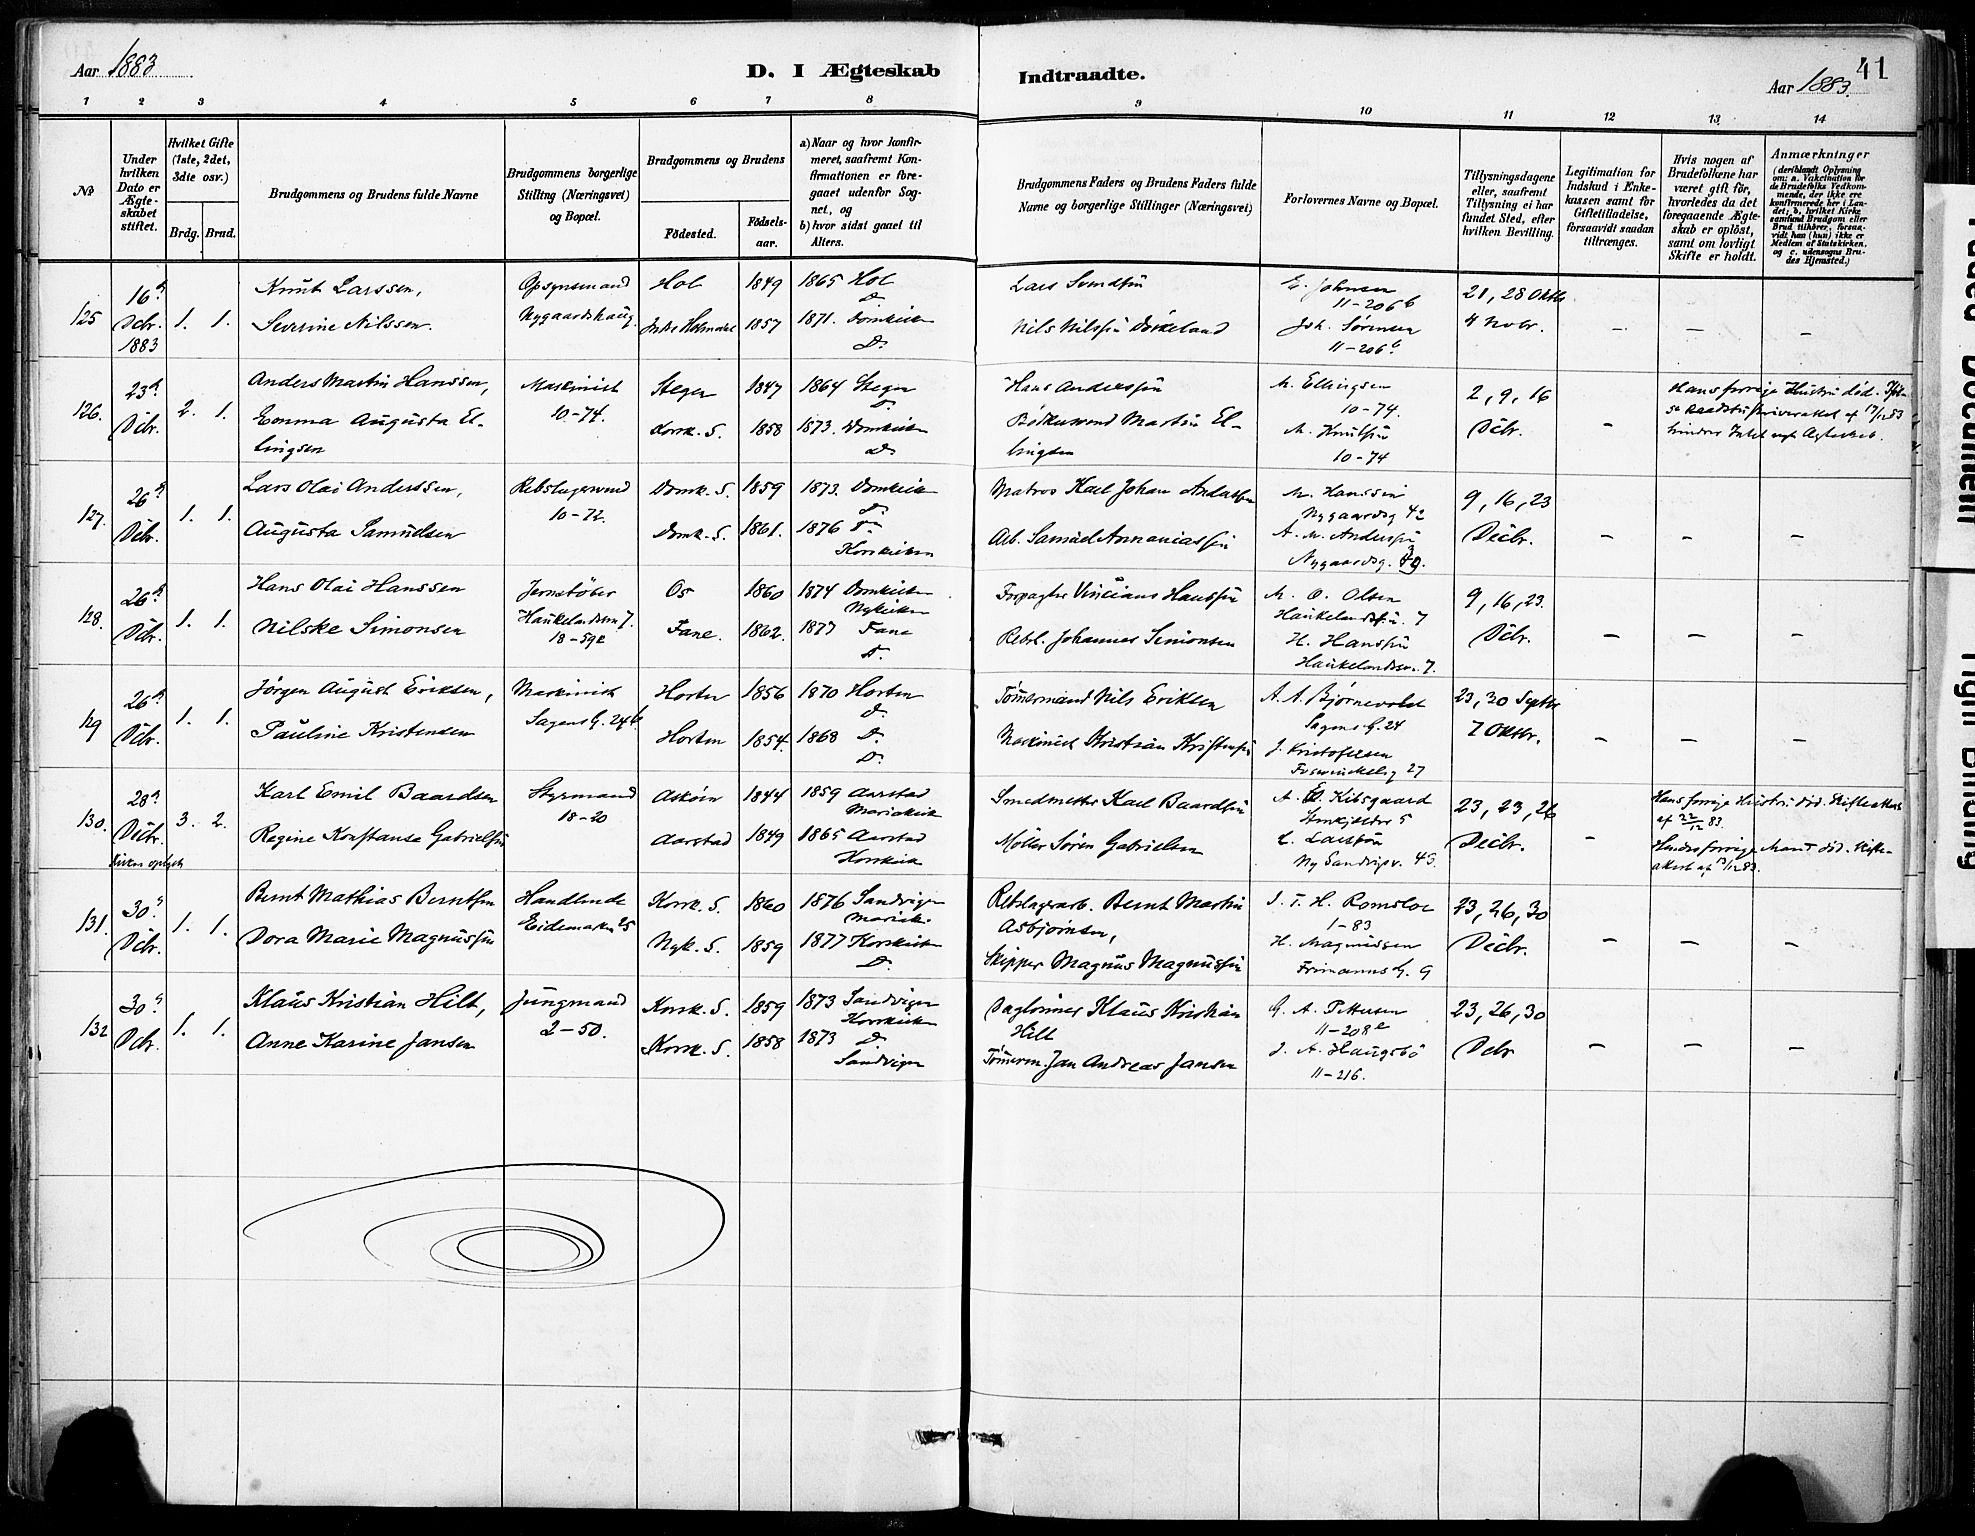 Aar 1883
D. I Ægteskab
Indtraadte.
Aar 1883.
41
1 2 3 4 5 6 7 8 9 10 11 12 13 14
No
Under
hvilken
Dato er
Ægte-
skabet
stiftet.
Hvilket Gifte
(1ste, 2det,
3die osv.)
Brdg. Brud.
Brudgommens og Brudens fulde Navne
Brudgommens borgerlige
Stilling (Næringsvei)
og Bopæl.
Brudgommens og Brudens
Födested.
Födsels-
aar.
a) Naar og hvor konfir-
meret, saafremt Kon-
firmationen er fore-
gaaet udenfor Sog-
net, og
b) hvor sidst gaaet til
Alters.
Brudgommens Faders og Brudens Faders fulde
Navne og borgerlige Stillinger (Næringsvei)
Forlovernes Navne og Bopæl.
Tillysningsdagene
eller, saafremt
Tillysning ei har
fundet Sted, efter
hvilken Bevilling.
Legitimation for
Indskud i Enke-
kassen samt for
Giftetilladelse,
forsaavidt saadan
tiltrænges.
Hvis nogen af
Brudefolkene har
været gift för,
hvorledes da det
foregaaende Ægte-
skab er oplöst,
samt om lovligt
Skifte er holdt.
Anmærkninger
(deriblandt Oplysning
om: a. Vakcination for
de Brudefolks Vedkom-
mende, der ikke ere
konfirmerede her i Lan-
det; b, hvilket Kirke
samfund Brudgom eller
Brud tilhörer, forsaa-
vidt han (hun) ikke er
Medlem af Statskirken.
og c. udensogns Bru-
des Hjemsted.)
125 16d Dcbr. 1883 1. 1.
Knut Larssen,
Severine Nilssen.
Opsynsmand
Nygaardshaug.
Hol 1849 1865 Hol
D.
Indre Holmedal 1857 1871. Domkirken
D.
Lars Svendsen
Nils Nilssen Dökeland
E. Johnsen
11-206 b
Joh. Sørensen
11-206 b.
21, 28 Oktbr
4 Nobr.
— — —
126. 23d Dcbr. 2. 1.
Anders Martin Hanssen,
Emma Augusta El-
lingsen
Maskinist
10-74.
Stegen 1847 1864 Stegen
D.
Korsk. S. 1858 1873. Domkirken
D.
Hans Anderssen
Bödkersvend Martin El-
lingsen
M. Ellingsen
10-74.
M. Knutsen
10-74
2, 9, 16
Dcbr.
—
Hans forrige Hustru död.
af 17/12 83
127. 26d Dcbr. 1. 1.
Lars Olai Anderssen,
Augusta Samuelsen
Rebslagersvend
10-72.
Domk. S. 1859 1873. Domkirk
D.
Domk. S. 1861. 1876 D.
Korskirken
Matros Karl Johan Anderssen
Arb. Samuel Annaniassen
M. Hanssen
Nygaardsg 42
A. M. Anderssen
Nygaardsg.
9, 16, 23
Dcbr.
— — —
128. 26d Dcbr. 1. 1.
Hans Olai Hanssen
Nilske Simonsen
Jernstöber
Haukelandsvn 7.
18-59e
Os 1860 1874 Domkirken
Nykirken
Fane. 1862. 1877 Fane
D.
Forpagter Vincians Hanssen
Rebsl. Johannes Simonsen
M. O. Olsen
7
H. Hanssen
Haukelandsv. 7.
9, 16, 23.
Dcbr.
— — —
129 26d Dcbr. 1. 1.
Jörgen August Eriksen,
Pauline Kristensen
Maskinist
Sagens G. 24b
Horten 1856 1870 Horten
D.
Horten 1854. 1868 D.
D.
Tömmermand Nils Eriksen
Maskinist Kristian Kristensen
A. A. Bjørnevolet
Sagens G. 24
J. Kristofersen
Foswinckelsg 27
23, 30 Septbr
7 Oktbr.
— — —
130. 28d Dcbr. 3. 2.
Karl Emil Baardsen
Regine Konstanse Gabrielsen
Styrmand
18-20
Askøen 1844 1859 Aarstad
Mariakirk
Aarstad 1849 1865 Aarstad
Korskirk
Smedmester Karl Baardsen
Møller Søren Gabrielsen
A. Kibsgaard
5
L. Larssen
Ny Sandvigsv. 43.
23, 23, 26
Dcbr.
—
Hans forrige Hustru död. Skifteakst
af 22/12 83.
Hendes forrige Mand död. Skifte-
akest af 13/12 83.
131. 30. Dcbr. 1. 1.
Bernt Mathias Berntsen
Dora Marie Magnussen
Handlende
Eidemarken 25
Korsk. S. 1860 1876 Sandvigen
Mariak.
Nyk. S. 1859 1877 Korskirken
D.
Rebslagerarb. Bernt Martin
Asbjörnsen,
Skipper Magnus Magnussen
J. T. H. Romsloe
1-83
H. Magnussen
Frimanns G. 9
23, 26, 30
Decbr.
— — —
132 30. Dcbr. 1. 1.
Klaus Kristian Hilt,
Anne Karine Jansen
Jungmand
2-50.
Korsk. S. 1859 1873 Sandvigen
Korskirken
Korsk. S. 1858 1873 D.
Sandvigen
Daglönner Klaus Kristian
Hilt
Tömmerm. Jan Andreas Jansen
G. A. Pettersen
11-208e
J. A. Haugsbö
11-216.
23, 26, 30
Dcbr
— — —